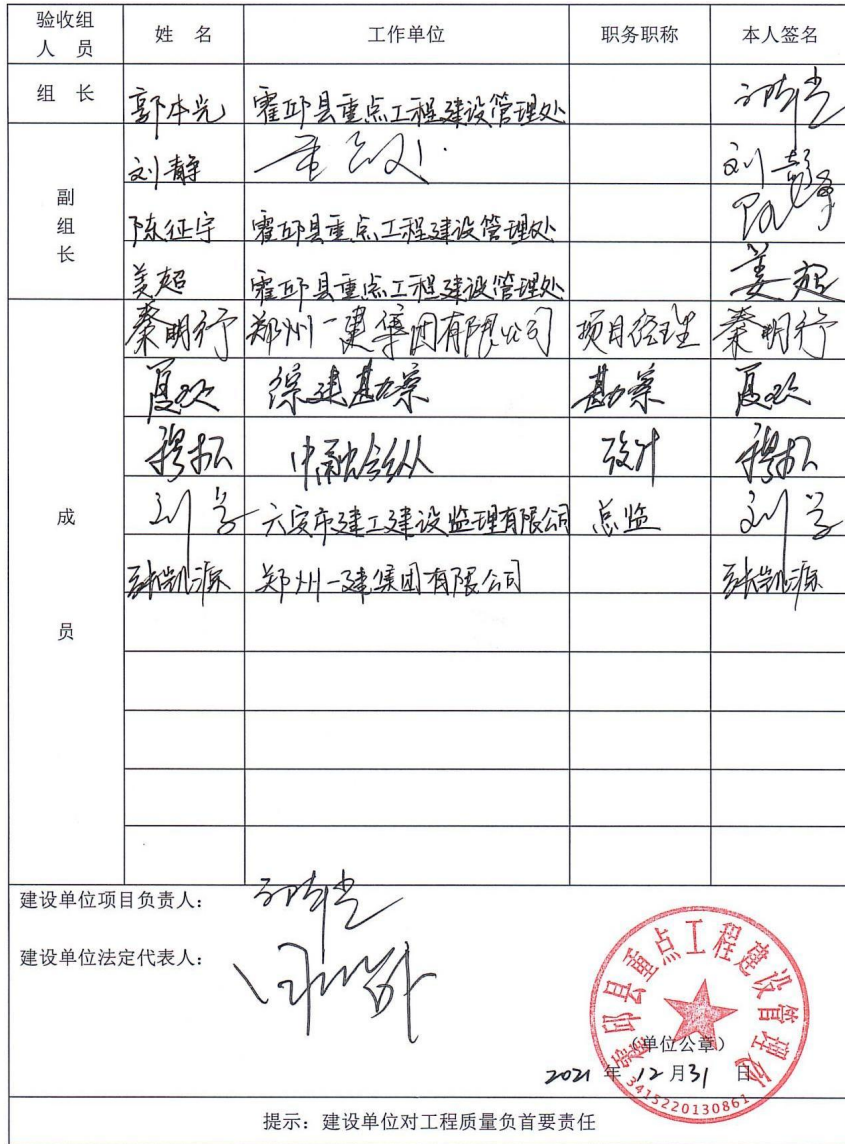 验收组人员 姓 名 工作单位 职务职称 本人签名
组 长 郭本光 霍邱县重点工程建设管理处
副组长 刘静 刘静
陈征宇 霍邱县重点工程建设管理处
姜超 霍邱县重点工程建设管理处 姜超
成员 秦明行 郑州一建集团有限公司 项目经理 秦明行
夏欢 综建勘察 勘察 夏欢
穆拓 中融合纵 设计 穆拓
刘 六安市建工建设监理有限公司 总监 刘
张凯源 郑州一建集团有限公司 张凯源
建设单位项目负责人:
建设单位法定代表人:
霍邱县重点工程建设管理处
(单位公章)
2021 年 12 月 31 日
3415220130861
提示:建设单位对工程质量负首要责任